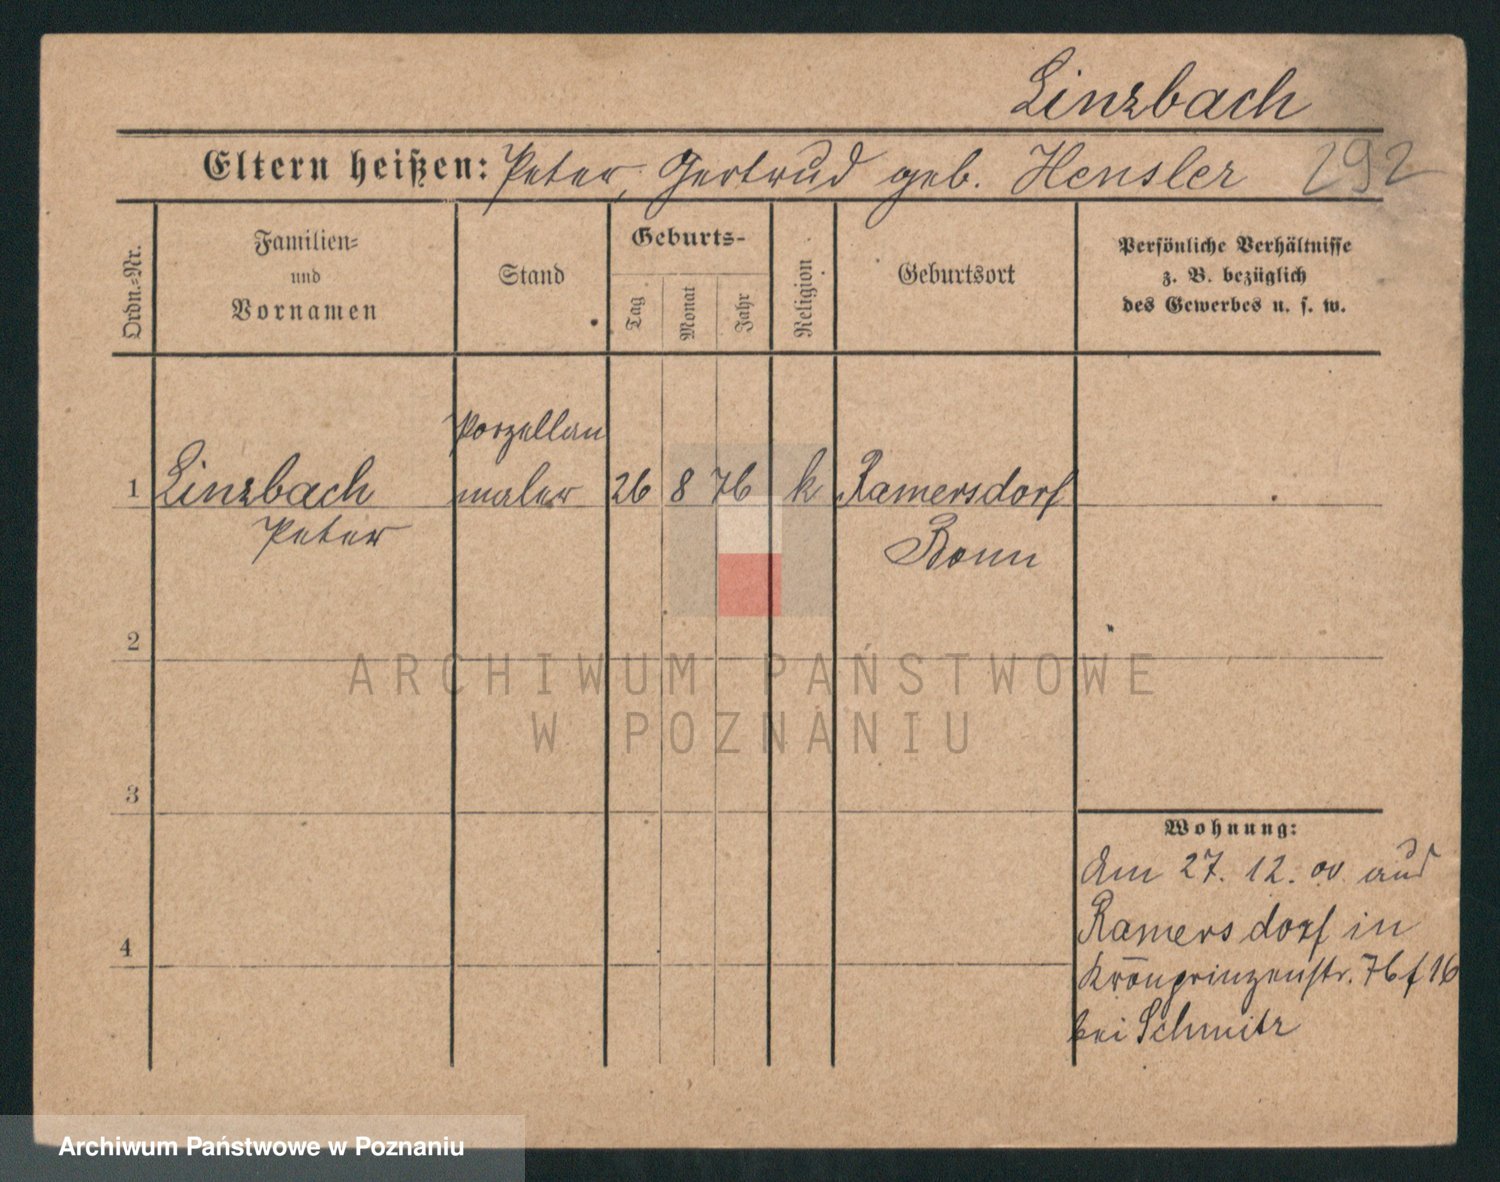 Linzbach
Eltern heißen: Peter, Gertrud geb. Hensler 292
Ordn.-Nr.
Familien-
und
Vornamen
Stand
Geburts-
Tag
Monat
Jahr
Religion
Geburtsort
Persönliche Verhältnisse
z. B. bezüglich
des Gewerbes u. s. w.
Porzellan
1 Linzbach maler 26 8 76 k Ramersdorf
Peter Bonn
2
ARCHIWUM PAŃSTWOWE
W POZNANIU
3
Wohnung:
Am 27. 12. 00 aus
4 Ramersdorf in
Kronprinzenstr. 76
bei Schmitz
Archiwum Państwowe w Poznaniu